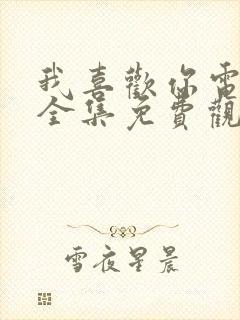 我喜歡你電
全集免費觀
雪夜星晨